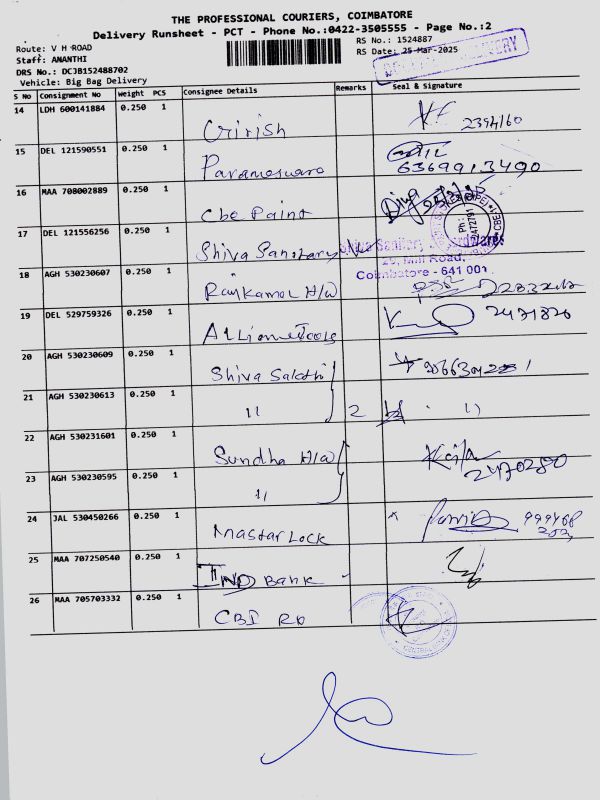 THE PROFESSIONAL COURIERS, COIMBATORE
Delivery Runsheet - PCT - Phone No.:0422-3505555 - Page No.:2
Route: V H ROAD
RS No.: 1524887
Staff: ANANTHI
RS Date: 25-Mar-2025
DRS No.: DCJB152488702
DELIVERY
Vehicle: Big Bag Delivery
S No Consignment No Weight PCS Consignee Details Remarks Seal & Signature
14 LDH 600141884 0.250 1 Crirish
15 DEL 121590551 0.250 1 Parameswara 6369913490
16 MAA 708002889 0.250 1 Cbe Paint
17 DEL 121556256 0.250 1 Shiva Sanetary
Shiva Sanitary
Mill Road,
Coimbatore - 641 001
18 AGH 530230607 0.250 1 Rajkamal H/W
19 DEL 529759326 0.250 1 2471820
20 AGH 530230609 0.250 1 Shiva Sakthi
21 AGH 530230613 0.250 1 11 2 11
22 AGH 531231601 0.250 1 Sundha H/W
23 AGH 530230595 0.250 1 11 2470280
24 JAL 530450266 0.250 1 Mastar Lock
25 MAA 707250540 0.250 1 IND Bank
26 MAA 705703332 0.250 1 CBI RO